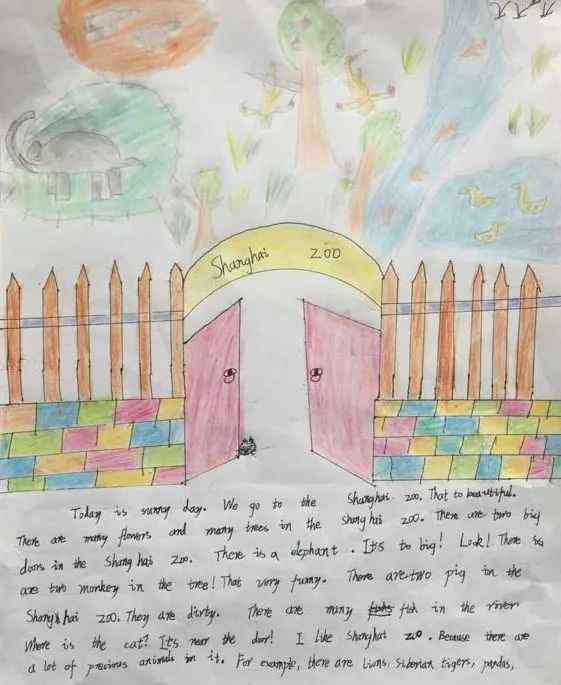 Shanghai ZOO
Today is sunny day. We go to the Shanghai zoo. That to beautiful.
There are many flowers and many trees in the Shanghai zoo. There are two big
doors in the Shang hai zoo. There is a elephant. It's to big! Look! There
are two monkey in the tree! That very funny. There are two pig in the
Shang hai zoo. They are dirty. There are many fish in the river
Where is the cat? It's near the door! I like Shanghai zoo. Because there are
a lot of precious animals in it. For example, there are lions, Siberian tigers, pandas,